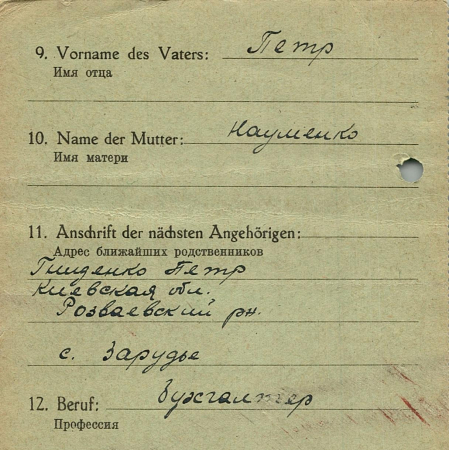 9. Vorname des Vaters: Петр
Имя отца
10. Name der Mutter: Науменко
Имя матери
11. Anschrift der nächsten Angehörigen:
Адрес ближайших родственников
Петр
Киевская обл.
Розваевский рн.
с. Зарудье
12. Beruf: Бухгалтер
Профессия